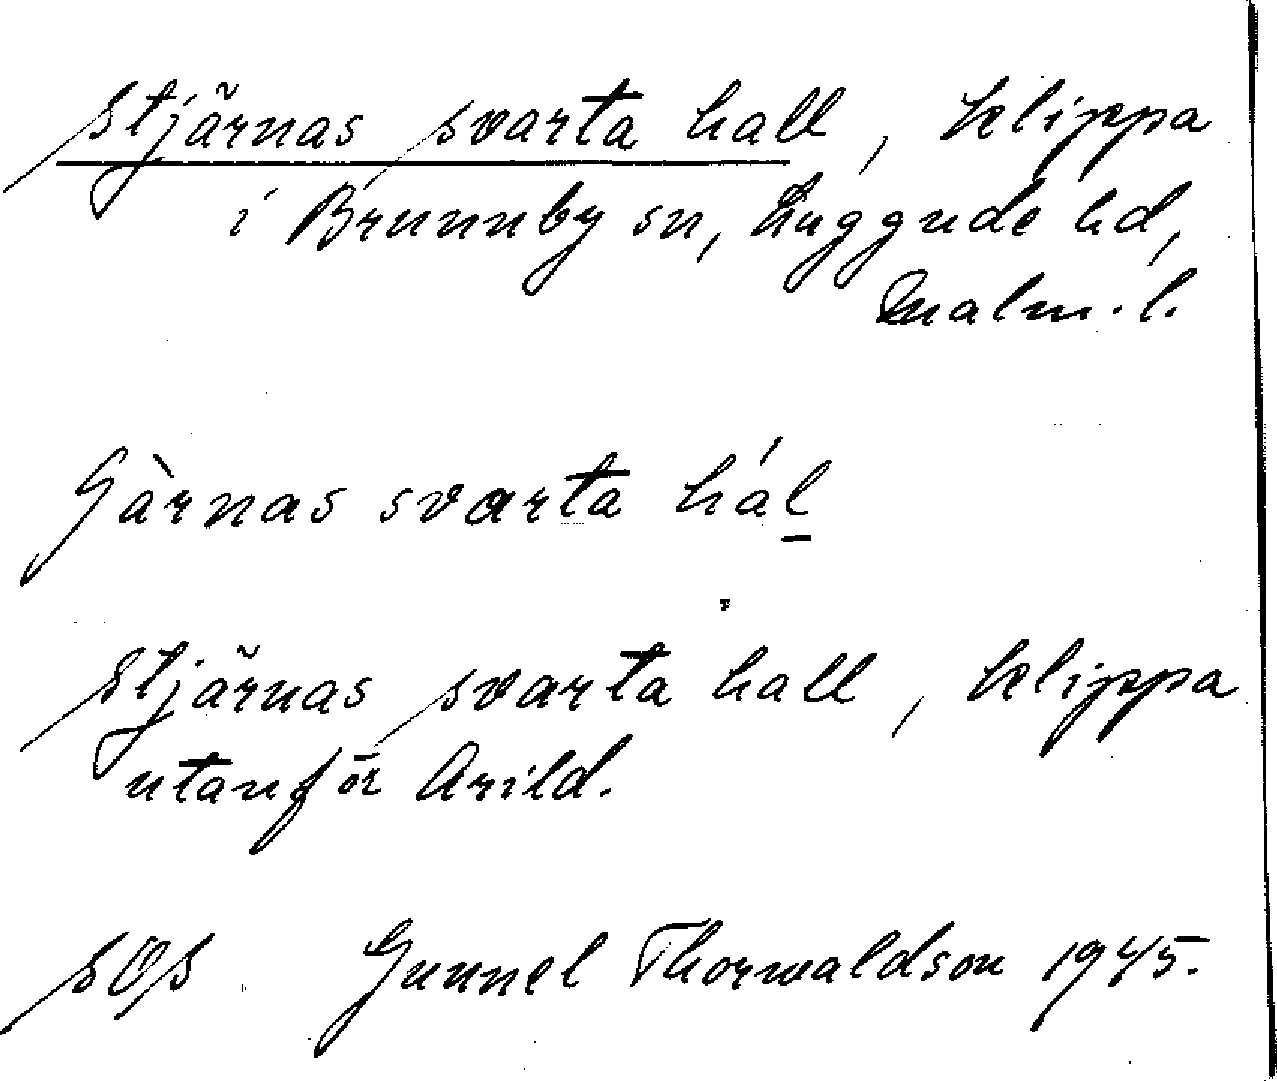 Stjärnas svarta hall, klippa
i Brunnby sn, Luggude hd,
Malm. l.
Gàrnas svarta hál
Stjärnas svarta hall, klippa
utanför Arild.
SOS Gunnel Thorwaldson 1945.